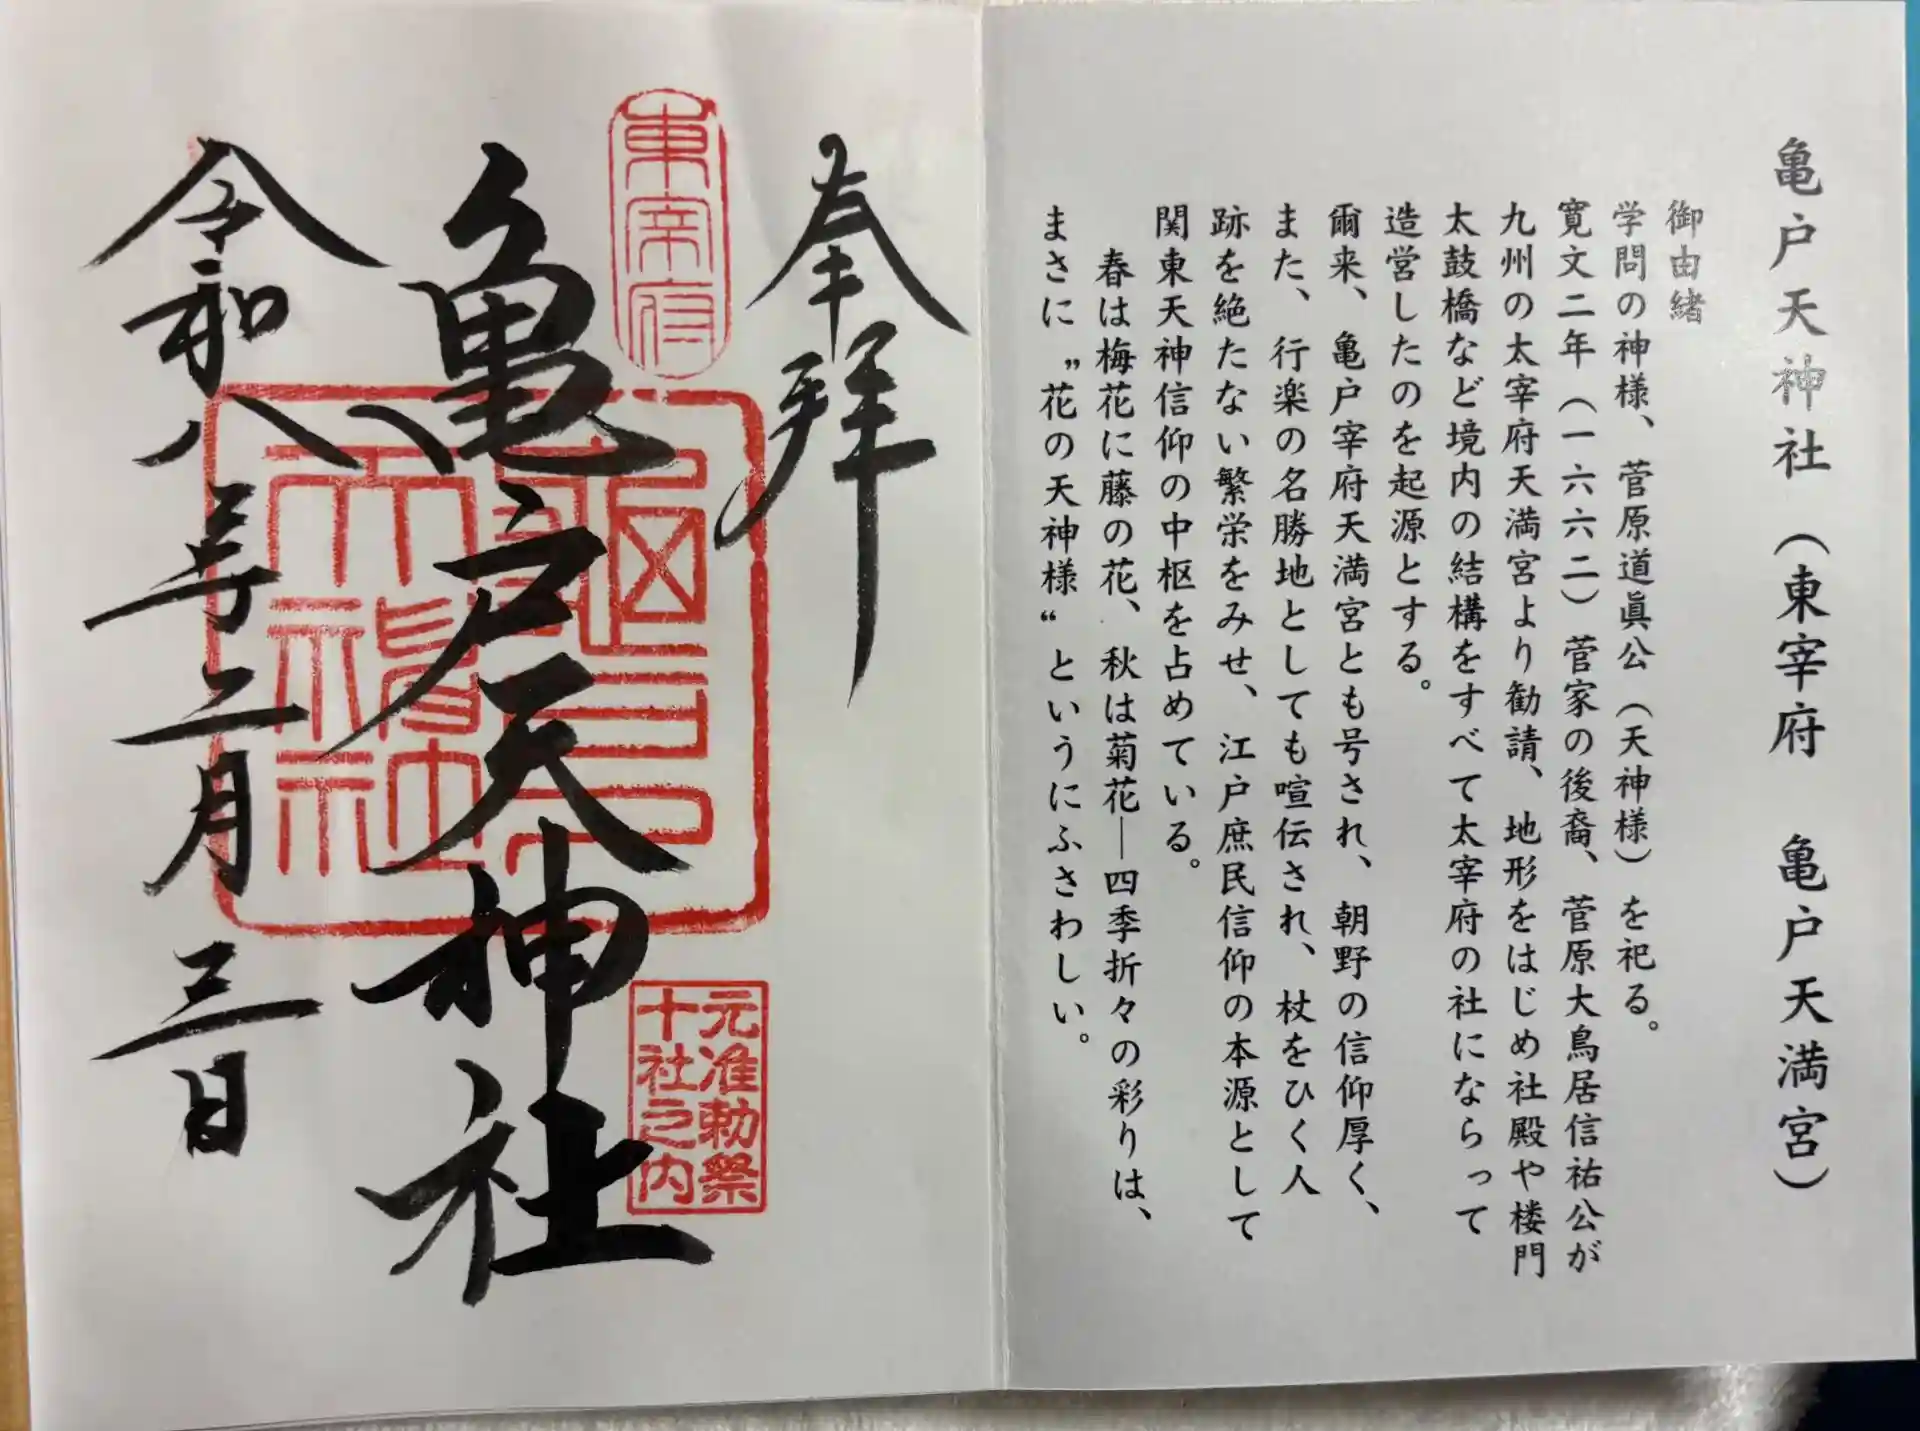 亀戸天神社（東宰府　亀戸天満宮）
御由緒
学問の神様、菅原道眞公（天神様）を祀る。
寛文二年（一六六二）菅家の後裔、菅原大鳥居信祐公が
九州の太宰府天満宮より勧請、地形をはじめ社殿や楼門
太鼓橋など境内の結構をすべて太宰府の社にならって
造営したのを起源とする。
爾来、亀戸宰府天満宮とも号され、朝野の信仰厚く、
また、行楽の名勝地としても喧伝され、杖をひく人
跡を絶たない繁栄をみせ、江戸庶民信仰の本源として
関東天神信仰の中枢を占めている。
春は梅花に藤の花、秋は菊花―四季折々の彩りは、
まさに〝花の天神様〟というにふさわしい。
奉拝
東宰府
亀戸天神社
元准勅祭
十社之内
令和八年二月三日